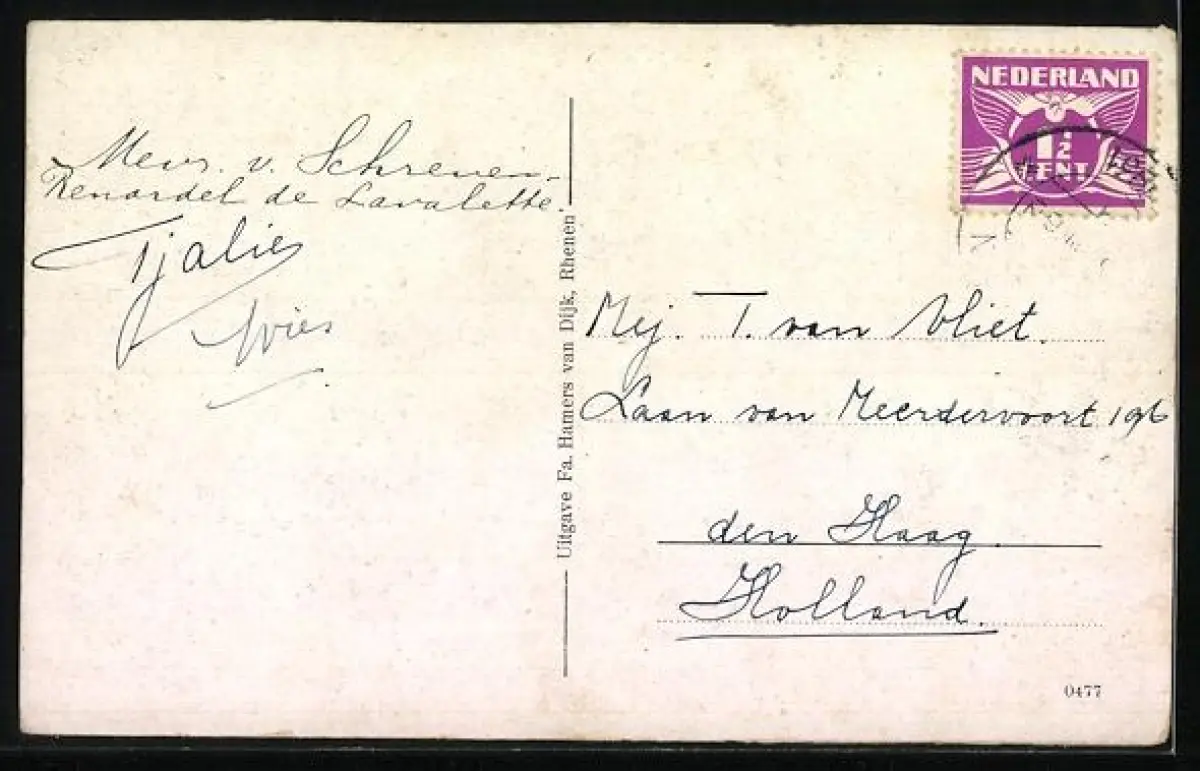 Mevr. v. Schreven-
Renardel de Lavalette.
Tjalies
Wies
Uitgave Fa. Hamers van Dijk, Rhenen
NEDERLAND
1½
CENT
Mej. T. van Vliet.
Laan van Meerdervoort 196
den Haag.
Holland.
0477